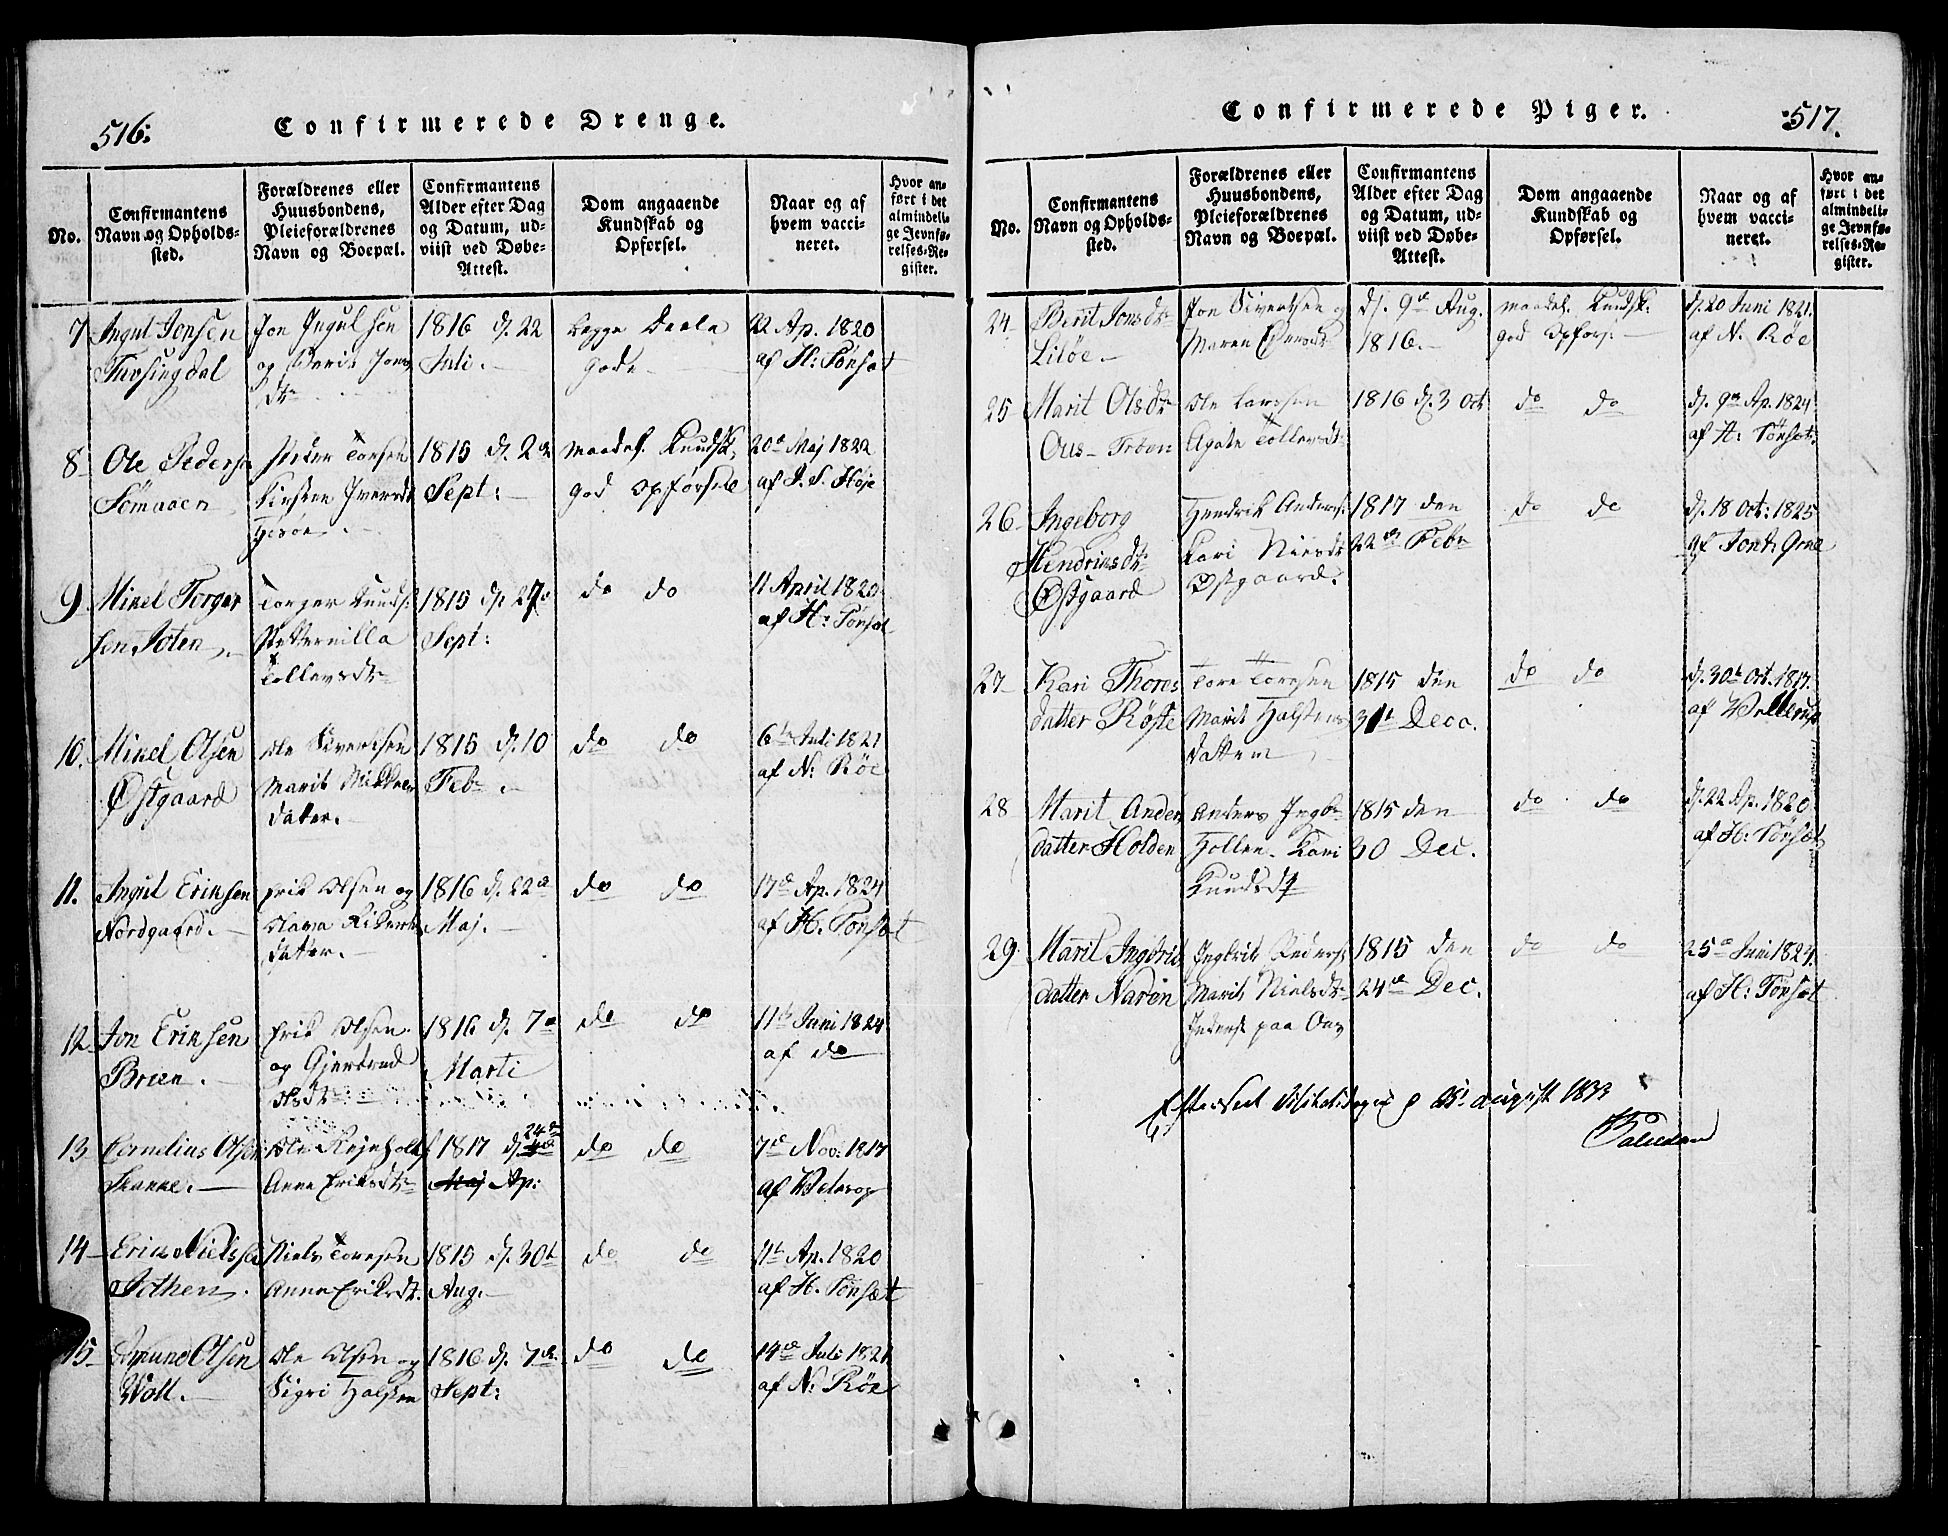 516:
Confirmerede Drenge.
No.
Confirmantens
Navn og Opholds-
sted.
Forældrenes eller
Huusbondens,
Pleieforældrenes
Navn og Boepæl.
Confirmantens
Alder efter Dag
og Datum, ud-
viist ved Døbe-
Attest.
Dom angaaende
Kundskab og
Opførsel.
Naar og af
hvem vacci-
neret.
Hvor an-
ført i det
almindeli-
ge Jevnfø-
relses-Re-
gister.
7
Ingul Jonsen
Tufsingdal
Jon Ingulsen
og Berit Jons
dtr
1816 d. 22
Juli.
begge Deele
gode
22 Ap. 1820
af H: Tønset
8
Ole Peders
Sømaaen
Peder Torsen
Kirsten Iversdt
1815 d. 2de
Sept:
maadel. Kundsk,
god Opførsel
20de Maj 1822
af J. S. Høje
9
Mikel Torger
sen Joten
Torger Knuds.
Petternilla
Tollevsdtr
1815 d. 27de
Sept:
do do
11 April 1820
af H: Tønset
10.
Mikel Olsen
Østgaard
Ole Sivertsen
Marit Mikkels
datter.
1815 d. 10
Febr.
do do
6te Juli 1821
af N: Røe
11.
Ingul Eriksen
Nordgaard.
Erik Olsen og
datter.
1816 d. 22de
Maj.
do do
17de Ap. 1824
af H. Tønset
12
Jon Eriksen
Brien.
Erik Olsen
og Gjertrud
Olsdtr
1816 d. 7de
Marti
do do
11te Juni 1824
af do
13
Cornelius Olsen
Skanke.
Ole
Anne Eriksdtr
1817 d. 24de
Maj Ap:
do do
7de Nov: 1817
af
14
Erik Nielssen
Jothen.
Niels Toresen
Anne Eriksdt.
1815 d. 30te
Aug.
do do
11te Ap. 1820
af H. Tønset
15
Amund Olsen
Woll.
Ole Olsen og
Sigri Halsten
1816 d. 7de
Sept:
do do
14de Juli 1821
af N: Røe
Confirmerede Piger.
517.
No.
Confirmantens
Navn og Opholds-
sted.
Forældrenes eller
Huusbondens,
Pleieforældrenes
Navn og Boepæl.
Confirmantens
Alder efter Dag
og Datum, ud-
viist ved Døbe-
Attest.
Dom angaaende
Kundskab og
Opførsel.
Naar og af
hvem vacci-
neret.
Hvor an-
ført i det
almindeli-
ge Jevnfø-
relses-Re-
gister.
24
Berit Jonsdtr
Liløe.
Jon Sivertsen og
Maren
d. 9de Aug.
1816.
maadel. Kundsk:
god Opførs:
d. 20 Juni 1821.
af N. Røe
25
Marit Olsdtr
Ous-Troen
Ole Larssen
Agate Tollevsdt:
1816 d. 3 Oct
do do
d. 9de Ap. 1824
af H: Tønset:
26
Ingeborg
Hendriksdtr
Østgaard
Hendrik Anders:
Kari
Østgaard.
1817 den
22de Febr
do do
d. 18 Oct: 1825
af
27
Kari Thores
datter Røste
Tore Toresen
Marit Halstens
datter
1815 den
31te Decc.
do do
d. 30te Oct. 1817.
af
28
Marit Anders
datter Holden
Anders Ingbr
Hollen. Kari
Knudsdtr
1815 den
30 Dec.
do do
d. 22 Ap. 1820
af H: Tønset
29
Marit Ingbrits
datter Narøn
Ingbrit Peders:
Marit Nielsdtr
Inderst paa Ous
1815 den
24de Dec.
do do
25de Juni 1824.
af H: Tønset
Efterseet Visitatsdagen August 1833